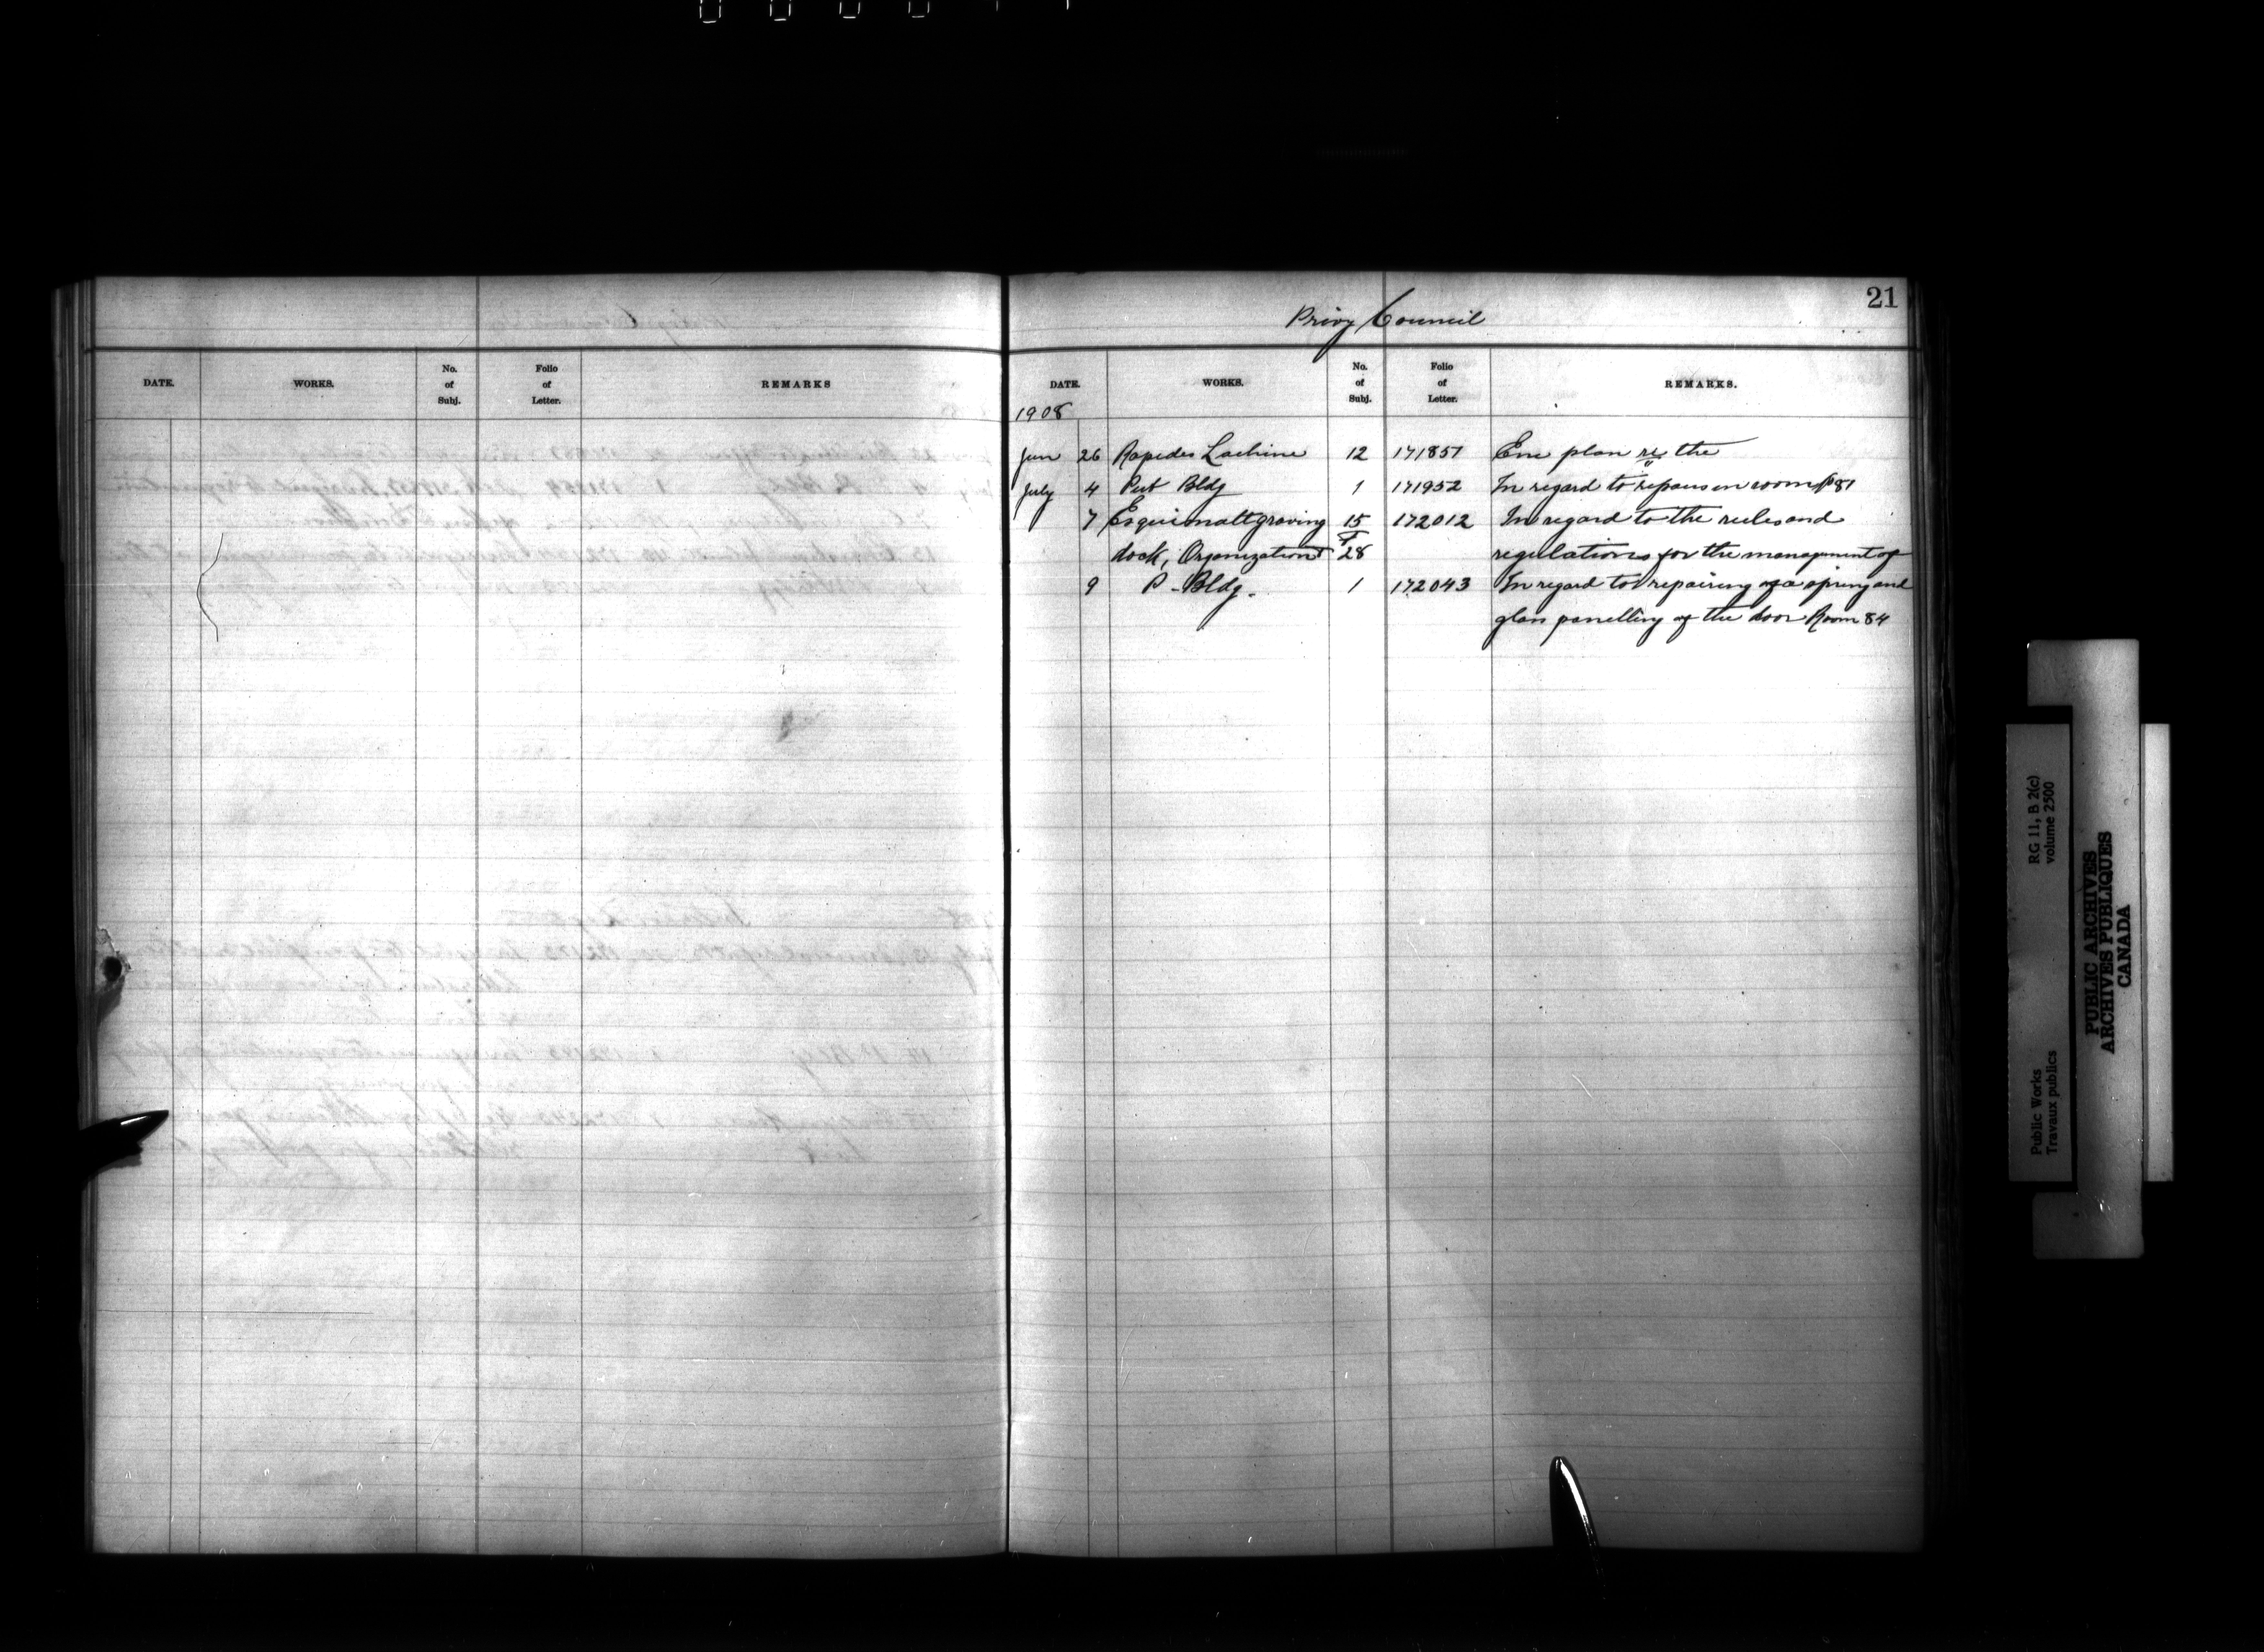 21
Privy Council
DATE. WORKS. No. of Subj. Folio of Letter. REMARKS
DATE. WORKS. No. of Subj. Folio of Letter. REMARKS.
1908
Jun 26 Rapides Lachine 12 171857 Enc plan re the
July 4 Pub Bldg 1 171952 In regard to repairs in room 81
7 Esquimalt graving 15 172012 In regard to the rules and
dock, Organization 28 regulations for the management of
9 P. Bldg. 1 172043 In regard to repairing of a spring and
glass panelling of the door Room 84
RG 11, B 2(c)
volume 2500
Public Works
Travaux publics
PUBLIC ARCHIVES
ARCHIVES PUBLIQUES
CANADA